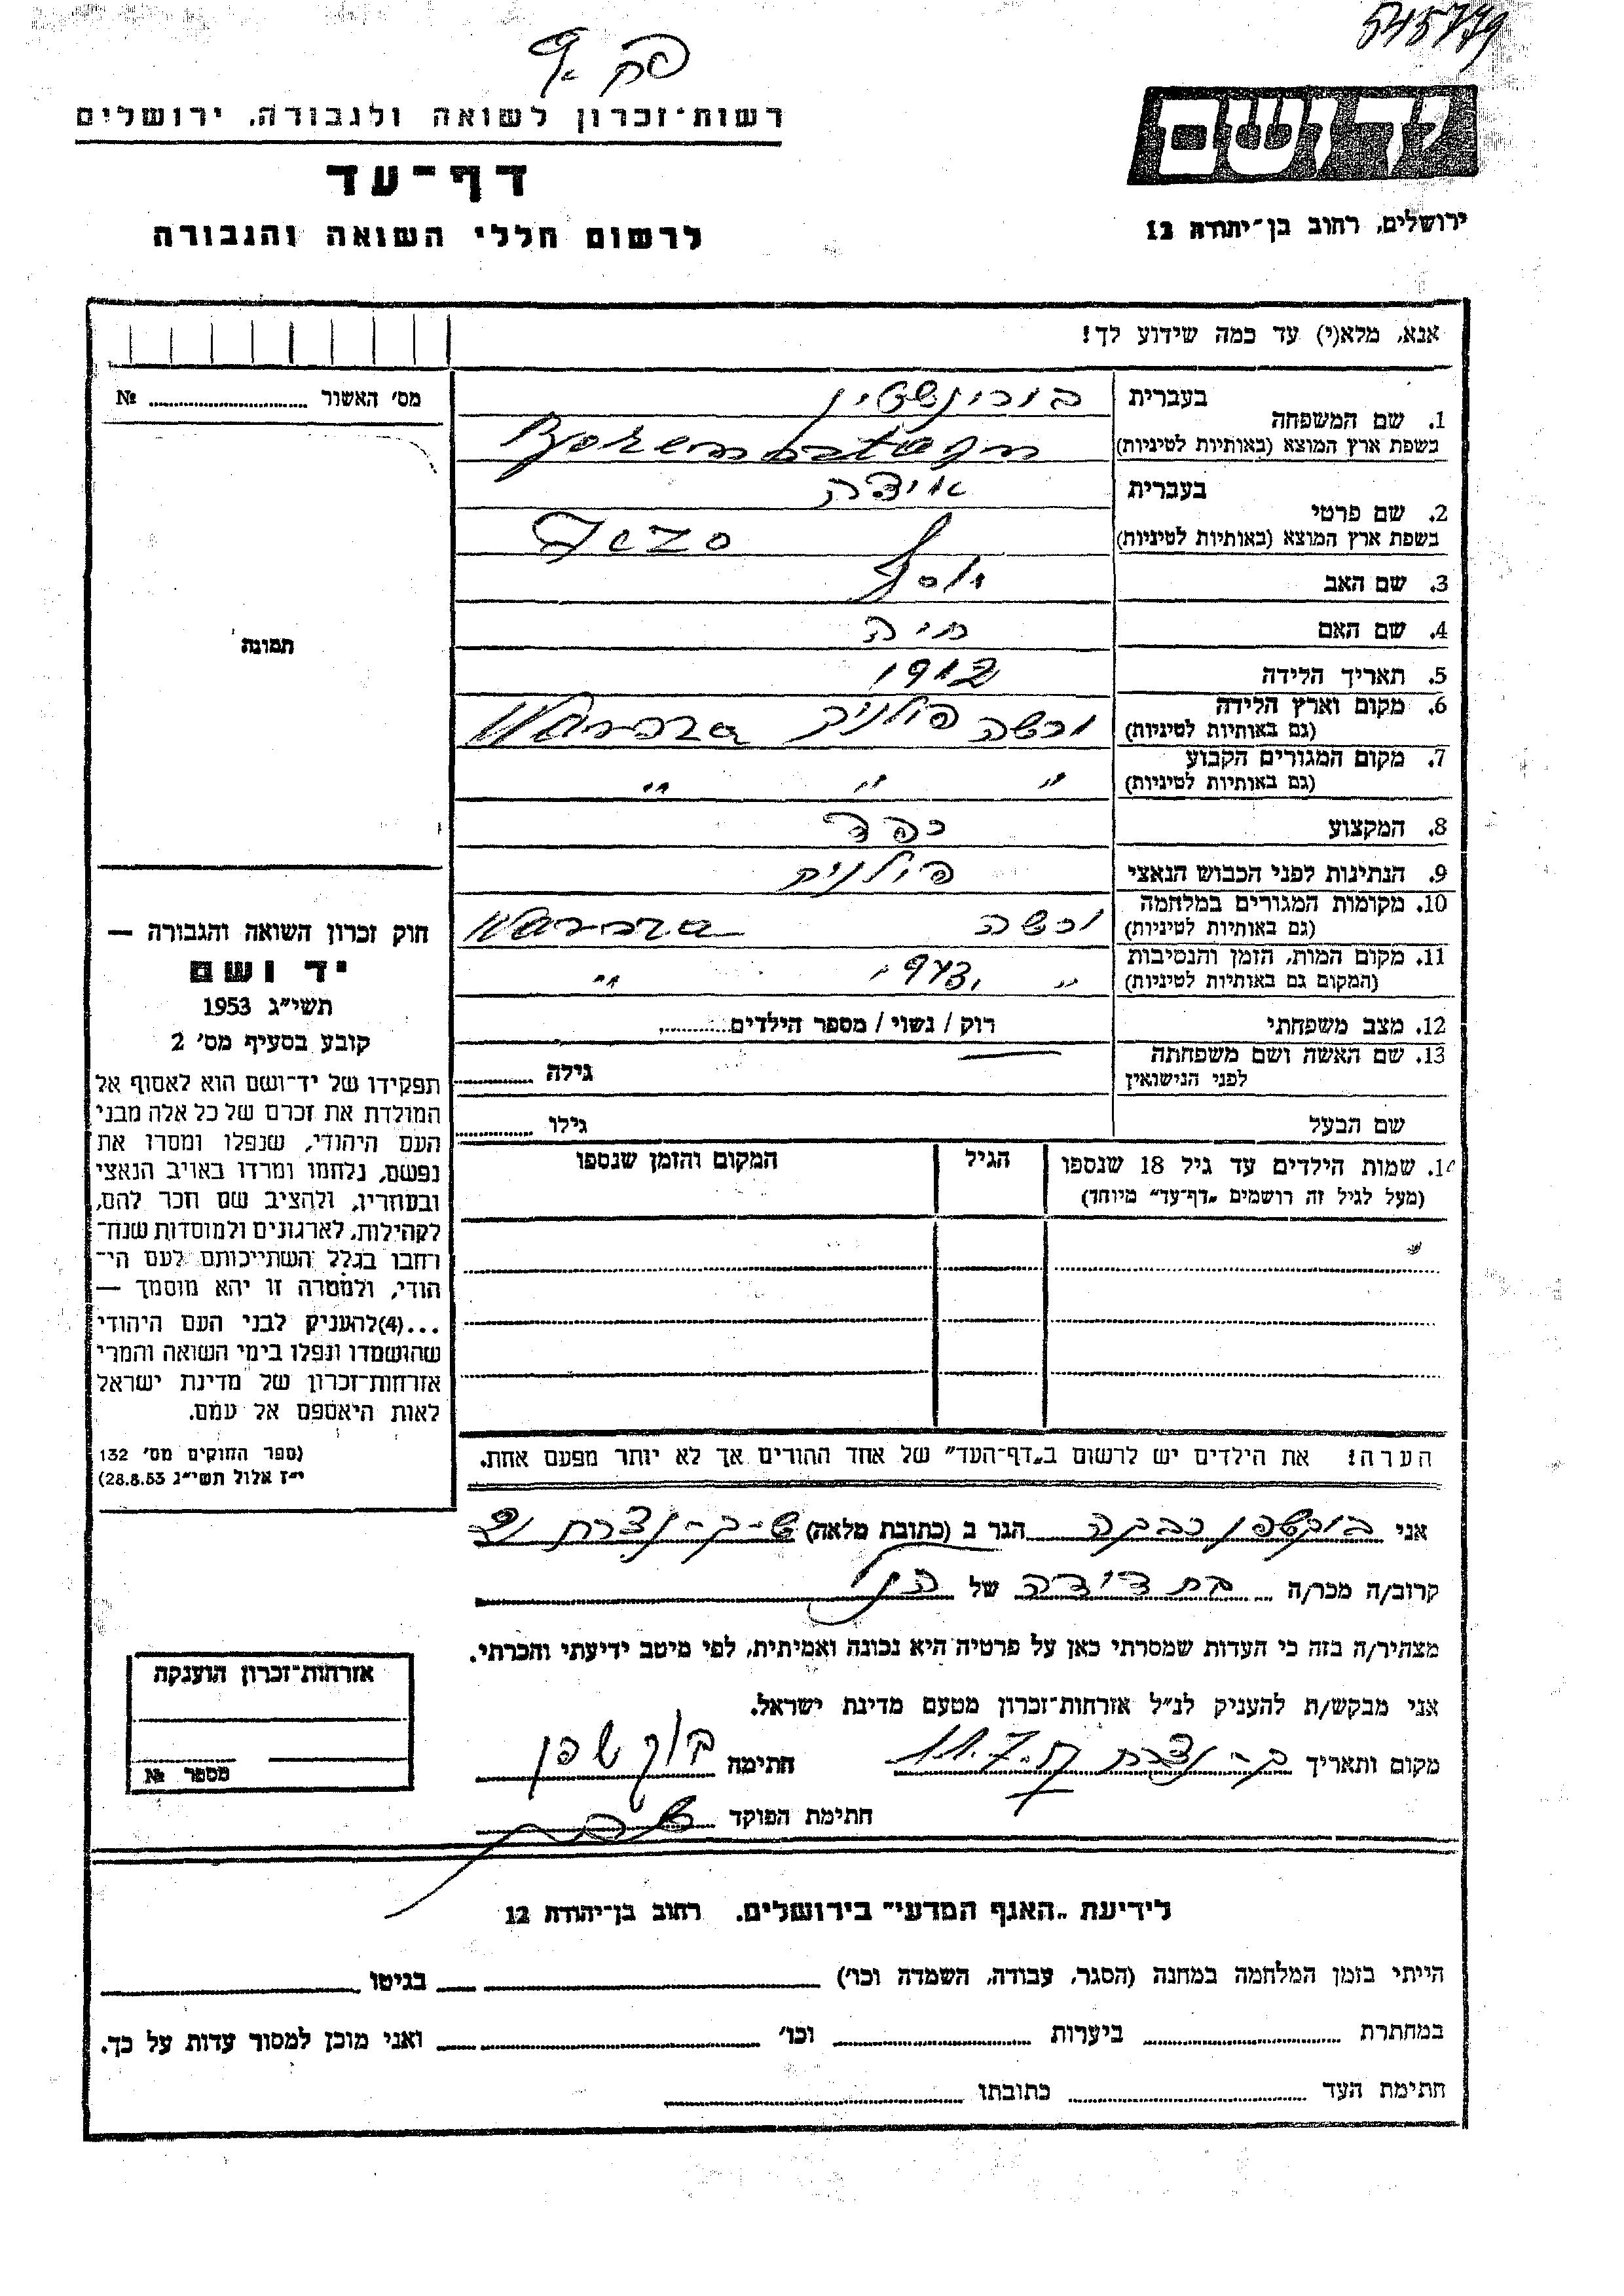 545779
רשות־זכרון לשואה ולגבורה, ירושלים
דף־עד
לרשום חללי השואה והגבורה
יד ושם
ירושלים, רחוב בן־יהודה 12
אנא, מלא(י) עד כמה שידוע לך!
מס׳ האשור № 
1. שם המשפחה בעברית בורינשטין
בשפת ארץ המוצא (באותיות לטיניות) Borensztagn
2. שם פרטי בעברית
בשפת ארץ המוצא (באותיות לטיניות)
3. שם האב יוסף
4. שם האם חיה
5. תאריך הלידה 1912
6. מקום וארץ הלידה (גם באותיות לטיניות) ורשה פולניה Warsza
7. מקום המגורים הקבוע (גם באותיות לטיניות) " " "
8. המקצוע
9. הנתינות לפני הכבוש הנאצי פולנית
10. מקומות המגורים במלחמה (גם באותיות לטיניות) ורשה Warsza
11. מקום המות, הזמן והנסיבות (המקום גם באותיות לטיניות) " 1943 "
12. מצב משפחתי רוק / נשוי / מספר הילדים
13. שם האשה ושם משפחתה לפני הנישואין גילה
שם הבעל גילו
14. שמות הילדים עד גיל 18 שנספו הגיל המקום והזמן שנספו
(מעל לגיל זה רושמים „דף־עד״ מיוחד)
הערה: את הילדים יש לרשום ב„דף־העד״ של אחד ההורים אך לא יותר מפעם אחת.
תמונה
חוק זכרון השואה והגבורה —
יד ושם
תשי״ג 1953
קובע בסעיף מס׳ 2
תפקידו של יד־ושם הוא לאסוף אל
המולדת את זכרם של כל אלה מבני
העם היהודי, שנפלו ומסרו את
נפשם, נלחמו ומרדו באויב הנאצי
ובעוזריו, ולהציב שם וזכר להם,
לקהילות, לארגונים ולמוסדות שנח־
רחבו בגלל השתייכותם לעם הי־
הודי, ולמטרה זו יהא מוסמך —
...(4) להעניק לבני העם היהודי
שהושמדו ונפלו בימי השואה והמרי
אזרחות־זכרון של מדינת ישראל
לאות היאספם אל עמם.
(ספר החוקים מס׳ 132
י״ז אלול תשי״ג 28.8.53)
אני בוקשפן רבקה הגר ב (כתובת מלאה)
קרוב/ה מכר/ה בת דודה של הנ״ל
מצהיר/ה בזה כי העדות שמסרתי כאן על פרטיה היא נכונה ואמיתית, לפי מיטב ידיעתי והכרתי.
אני מבקש/ת להעניק לנ״ל אזרחות־זכרון מטעם מדינת ישראל.
מקום ותאריך חתימה בוקשפן
חתימת הפוקד
אזרחות־זכרון הוענקה
מספר №
לידיעת „האגף המדעי״ בירושלים, רחוב בן־יהודה 12
הייתי בזמן המלחמה במחנה (הסגר, עבודה, השמדה וכו׳) בגיטו
במחתרת ביערות וכו׳ ואני מוכן למסור עדות על כך.
חתימת העד כתובתו